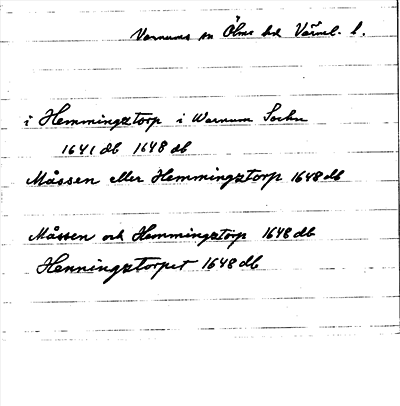 Varnums sn Ölme hd Värml. l.
i Hemmingztorp i Warnum Sochn
1641 db 1648 db
Måssen eller Hemmingztorp 1648 db
Måssen och Hemmingztorp 1648 db
Henningztorpet 1648 db